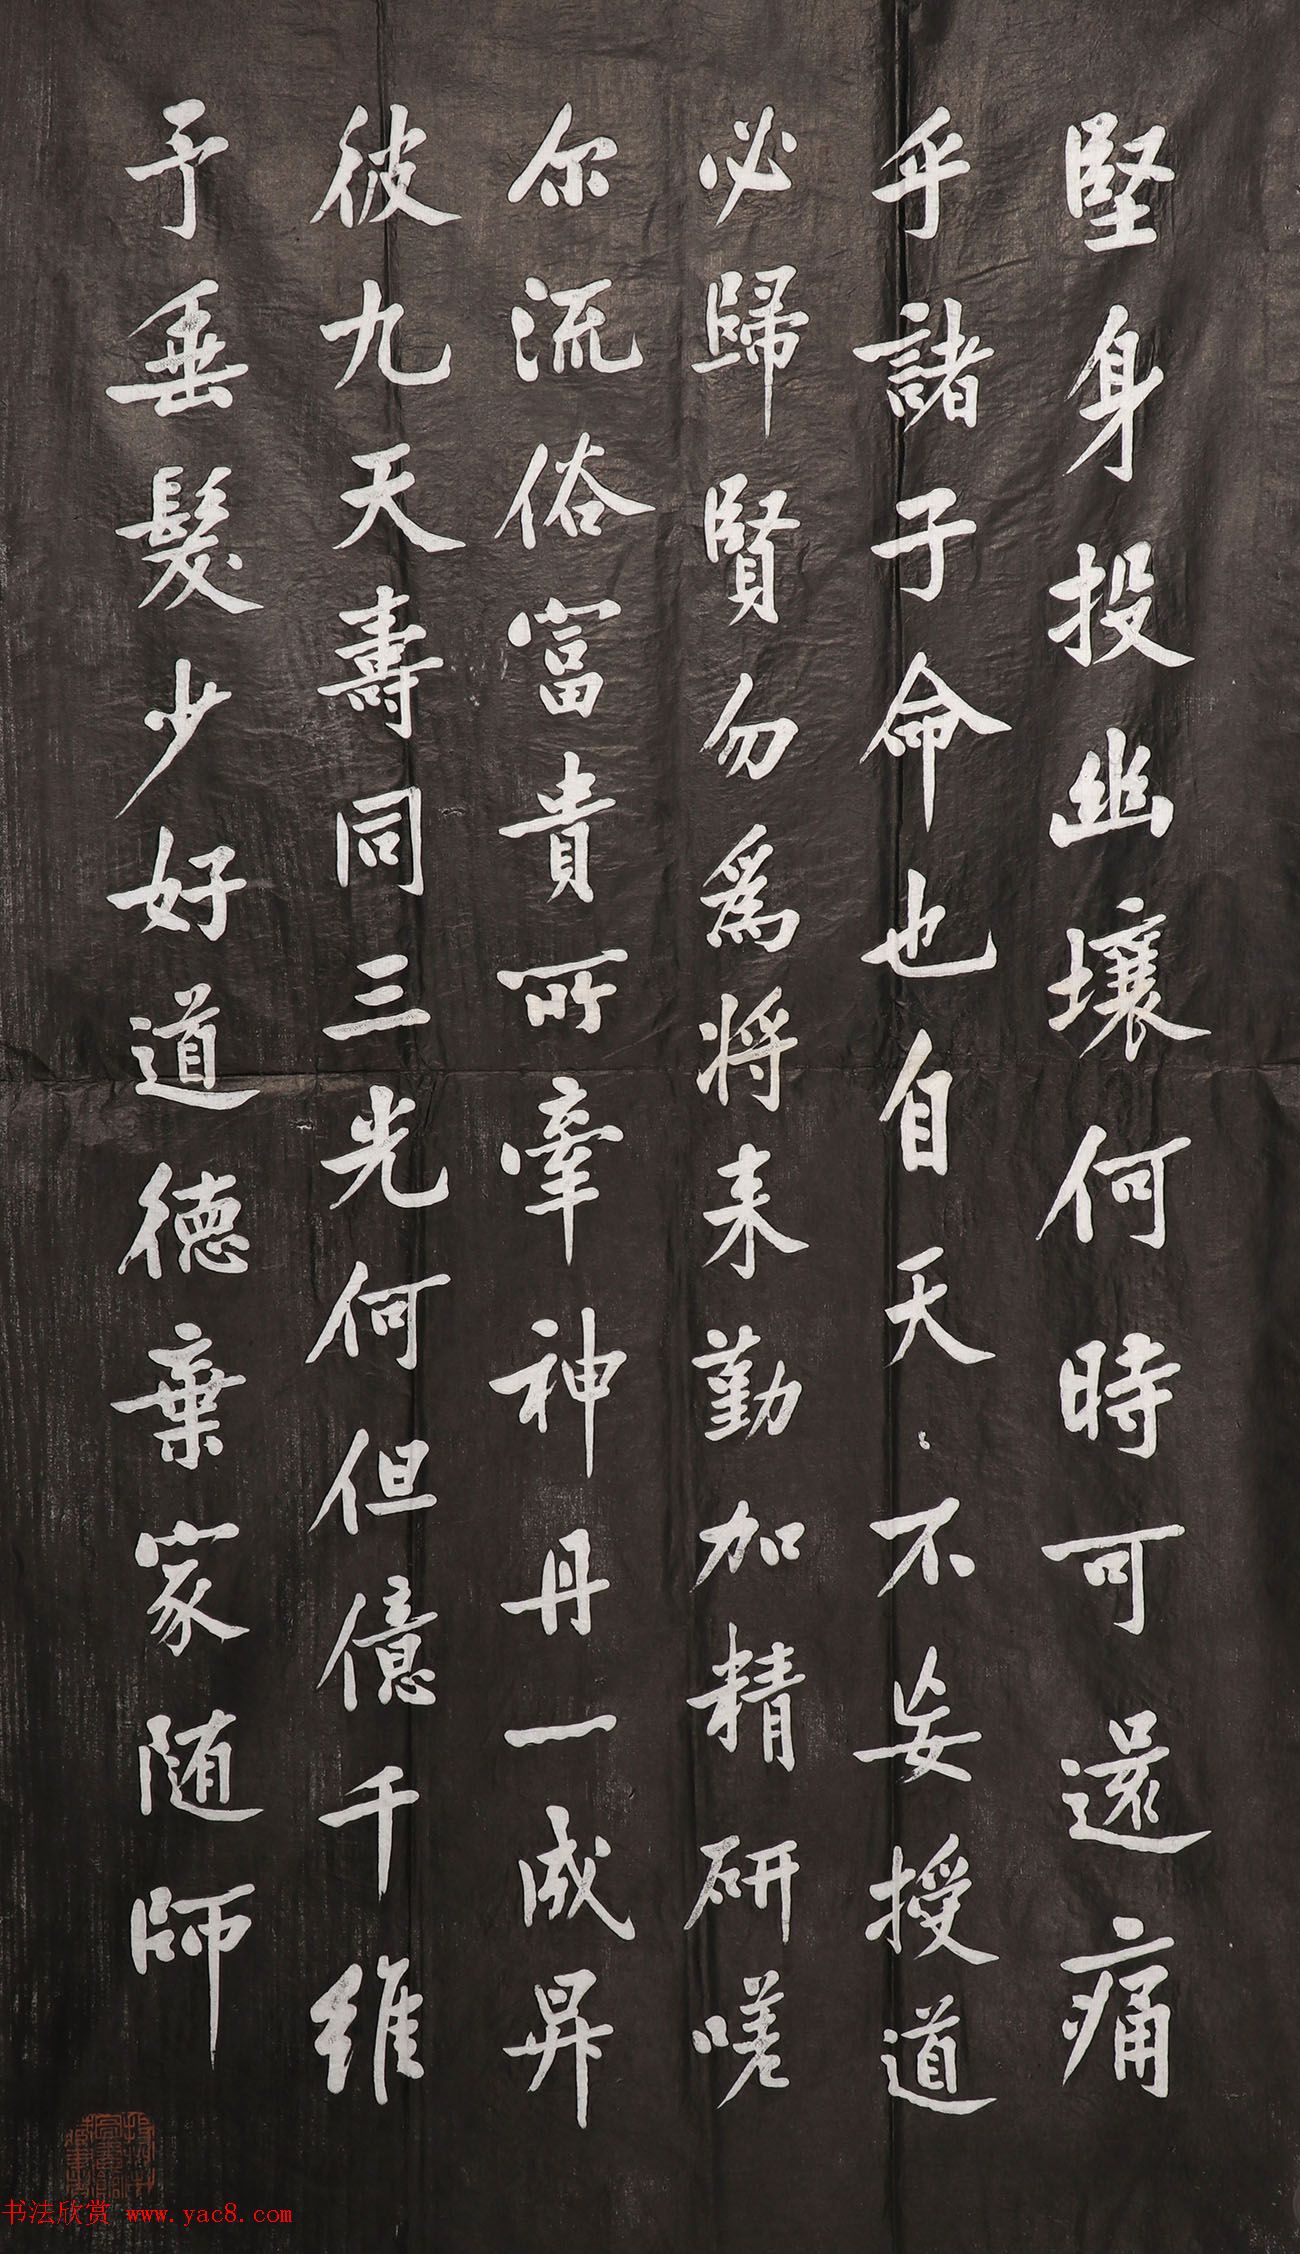 堅身投幽壤何時可還痛
乎諸子命也自天不妄授道
必歸賢勿爲將来勤加精研嗟
尔流俗富貴所牽神丹一成昇
彼九天壽同三光何但億千維
予垂髮少好道德棄家随師
书法欣赏 www.yac8.com